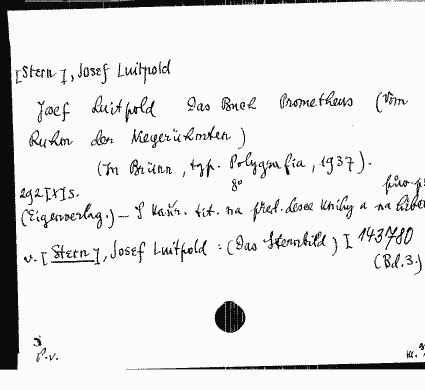 [Stern], Josef Luitpold
Josef Luitpold Das Buch Prometheus (Vom
Ruhm der Niegerühmten)
(In Brünn, typ. Polygrafia, 1937).
8°
292 [X] s.
(Eigenverlag.) — S naür. tit. na před. desce knihy a na hřbe
v. [Stern], Josef Luitpold: (Das Sternbild) [ 143780
(Bd.3.)
P.v.